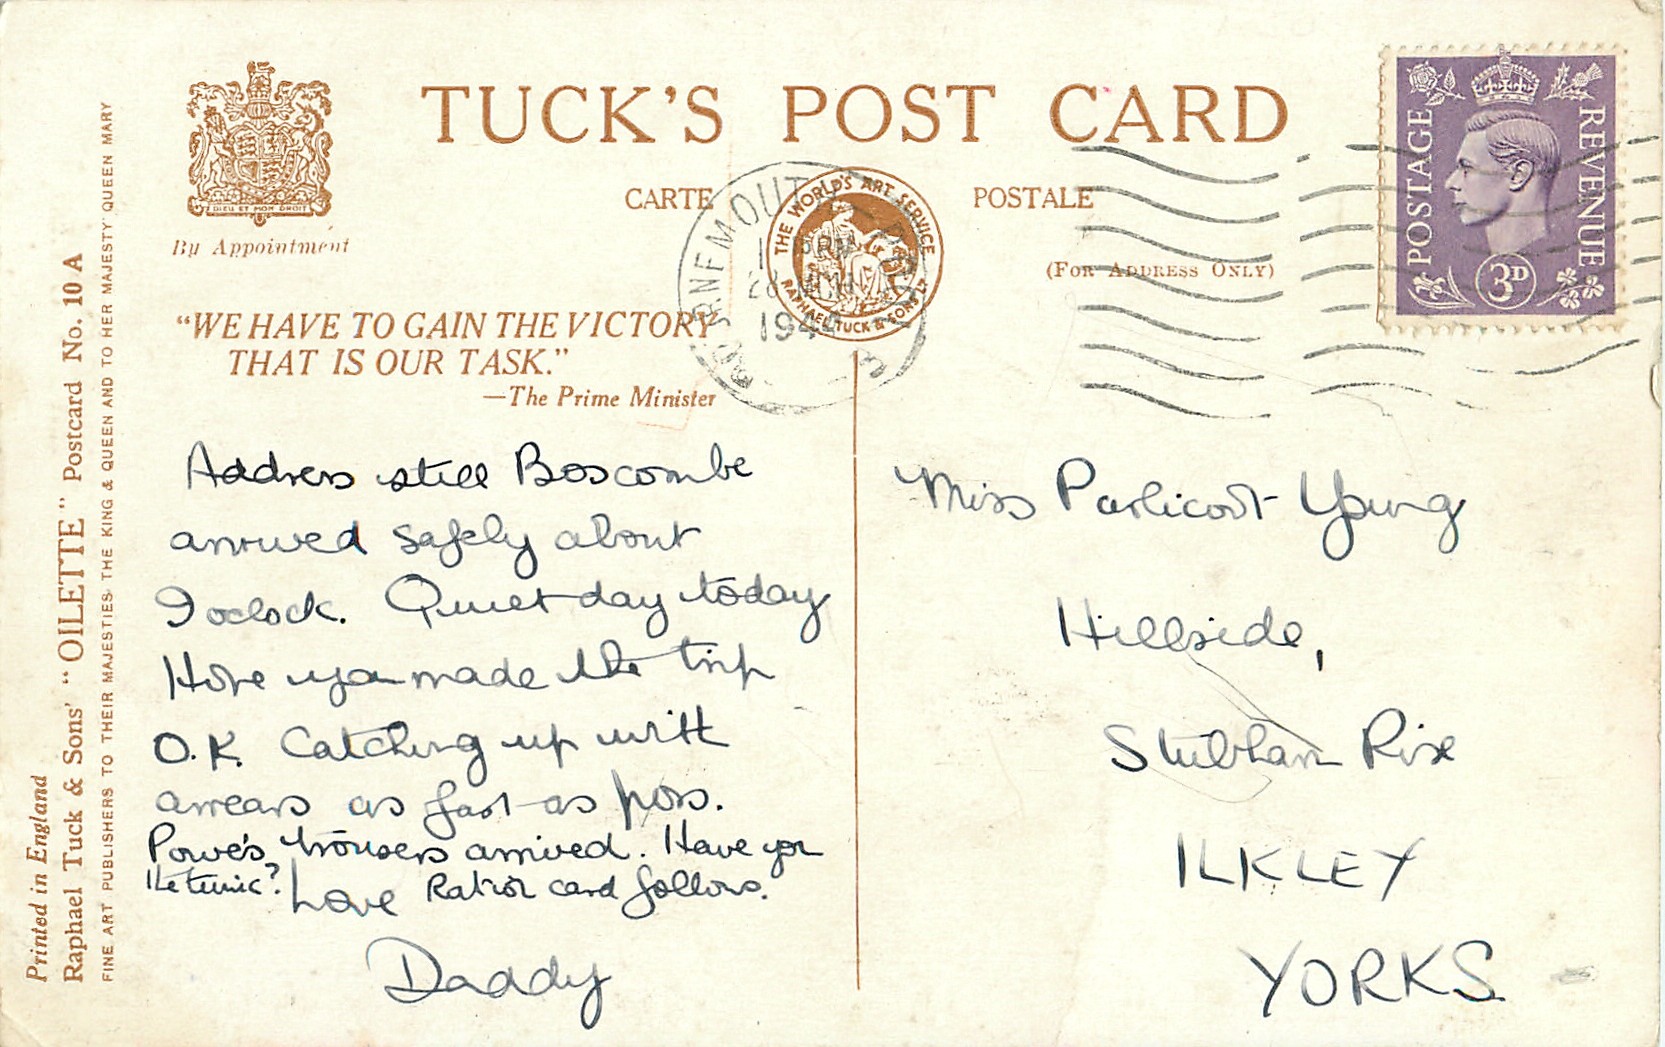 TUCK'S POST CARD
CARTE POSTALE
(FOR ADDRESS ONLY)
DIEU ET MON DROIT
By Appointment
THE WORLD'S ART SERVICE
RAPHAEL TUCK & SONS
POSTAGE REVENUE
3D
BOURNEMOUTH
MCH
"WE HAVE TO GAIN THE VICTORY
THAT IS OUR TASK."
—The Prime Minister
Address still Boscombe
arrived safely about
9 oclock. Quiet day today
Hope you made the trip
O.K. Catching up with
arrears as fast as poss.
Powe's trousers arrived. Have you
the tunic? Ration card follows.
Love
Daddy
Miss Young
Hillside,
Stubham Rise
ILKLEY
YORKS.
Printed in England
Raphael Tuck & Sons' "OILETTE" Postcard No. 10 A
FINE ART PUBLISHERS TO THEIR MAJESTIES THE KING & QUEEN AND TO HER MAJESTY QUEEN MARY